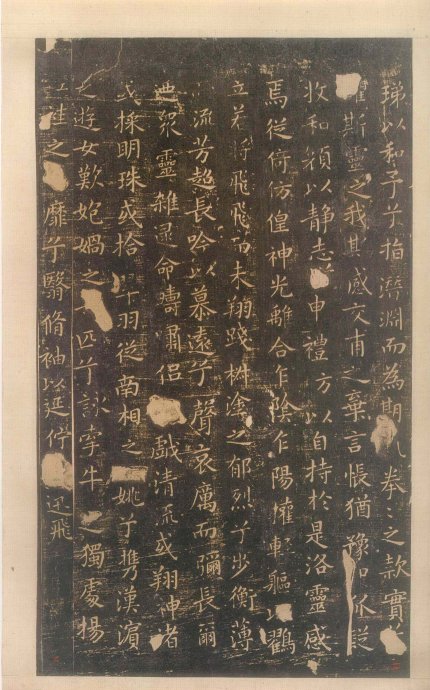 珶以和予兮指潛淵而為期拳〻之款實
斯靈之我其感交甫之棄言悵猶豫
收和顏以靜志申禮方以自持於是洛靈感
焉徙倚仿偟神光離合乍陰乍陽擢輕軀以鶴
立若將飛飛而未翔踐椒塗之郁烈兮步衡薄
流芳超長吟以慕遠兮聲哀厲而彌長爾
迺眾靈雜遝命疇嘯侶戲清流或翔神渚
或採明珠或拾羽從南相之姚兮攜漢濱
之遊女歎匏媧之匹兮詠牽牛之獨處揚
袿之靡兮翳脩袖以延佇迅飛